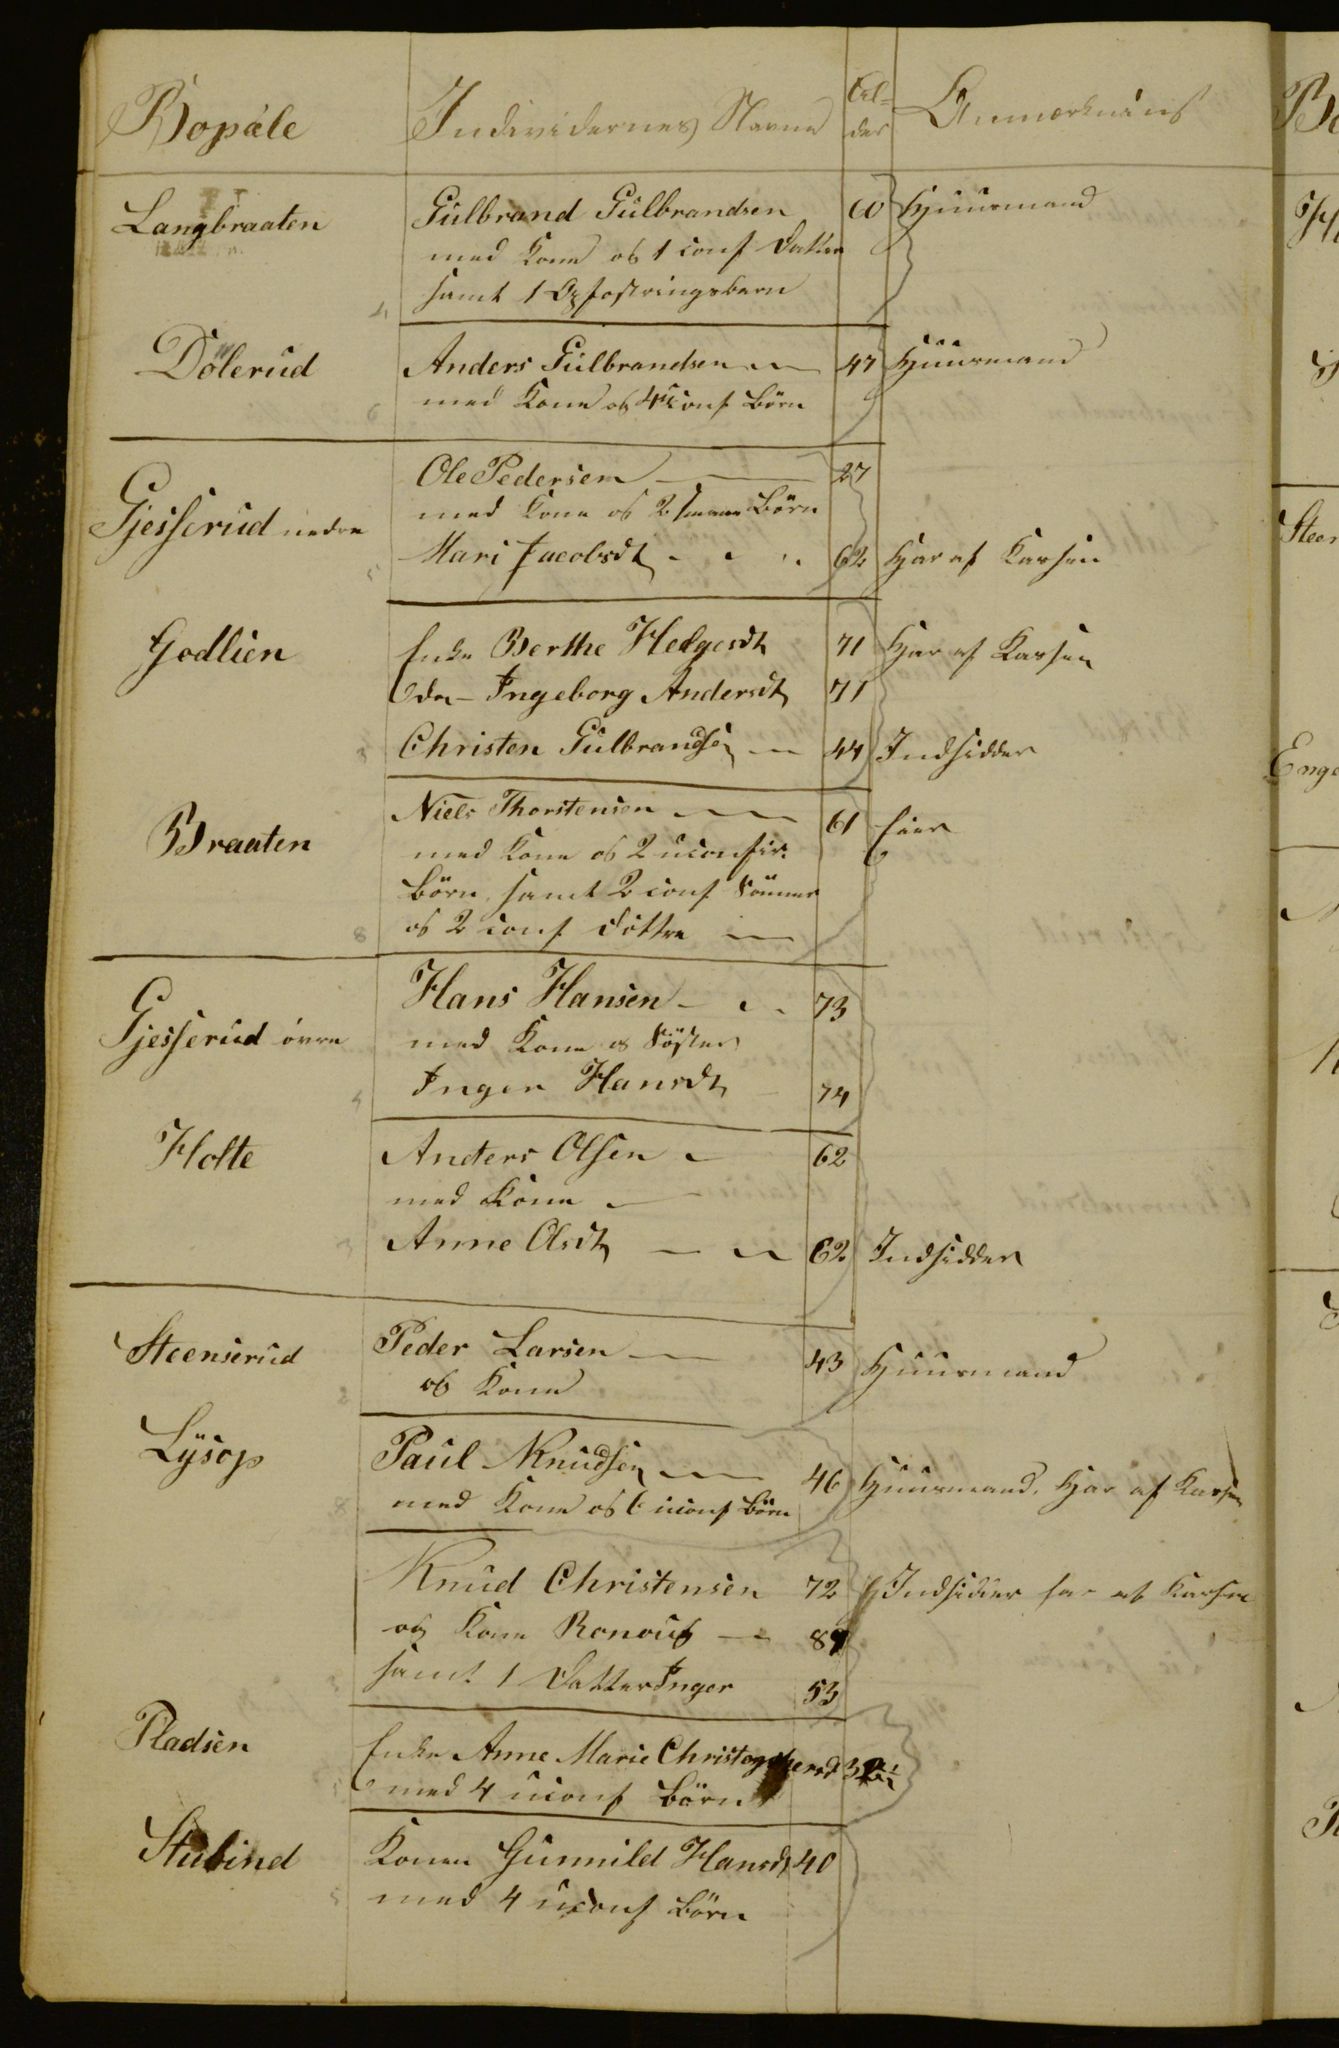 Bopæle Individernes Navne Al- Anmærkning
der
Langbraaten Gulbrand Gulbrandsen 60 Huusmand
med Kone og 1 conf Datter
samt 1 Opfostringsbarn
4
Dölerud Anders Gulbrandsen 47 Huusmand
med Kone og 4 uconf Börn
6
Ole Pedersen 27
Gjesserud nedre med Kone og 2 smaae Börn
Mari Jacobsdt 62 Har af Kassen
5
Godlien Enke Berthe Helgesdt 71 Har af Kassen
do Ingeborg Andersdt 71
Christen Gulbrandsen 44 Indsidder
3
Niels Thorstensen 61 Eier
Braaten med Kone og 2 uconfir.
Börn samt 2 conf Sönner
og 2 conf Döttre
8
Hans Hansen 73
Gjesserud övre med Kone og Söster
Inger Hansdt 74
4
Holte Anders Olsen 62
med Kone
Anne Olsdt 62 Indsidder
3
Steenserud Peder Larsen 43 Huusmand
og Kone
2
Lÿsop Paul Knudsen 46 Huusmand. Har af Kassen
med Kone og 6 uconf Börn
8
Knud Christensen 72 Indsidder har af Kassen
og Kone Ronoug 89
samt 1 Datter Inger 53
3
Pladsen Enke Anne Marie Christophersdt
med 4 uconf Börn
5
Stubind Konen Gunnild Hansdt 40
med 4 uconf Börn
5